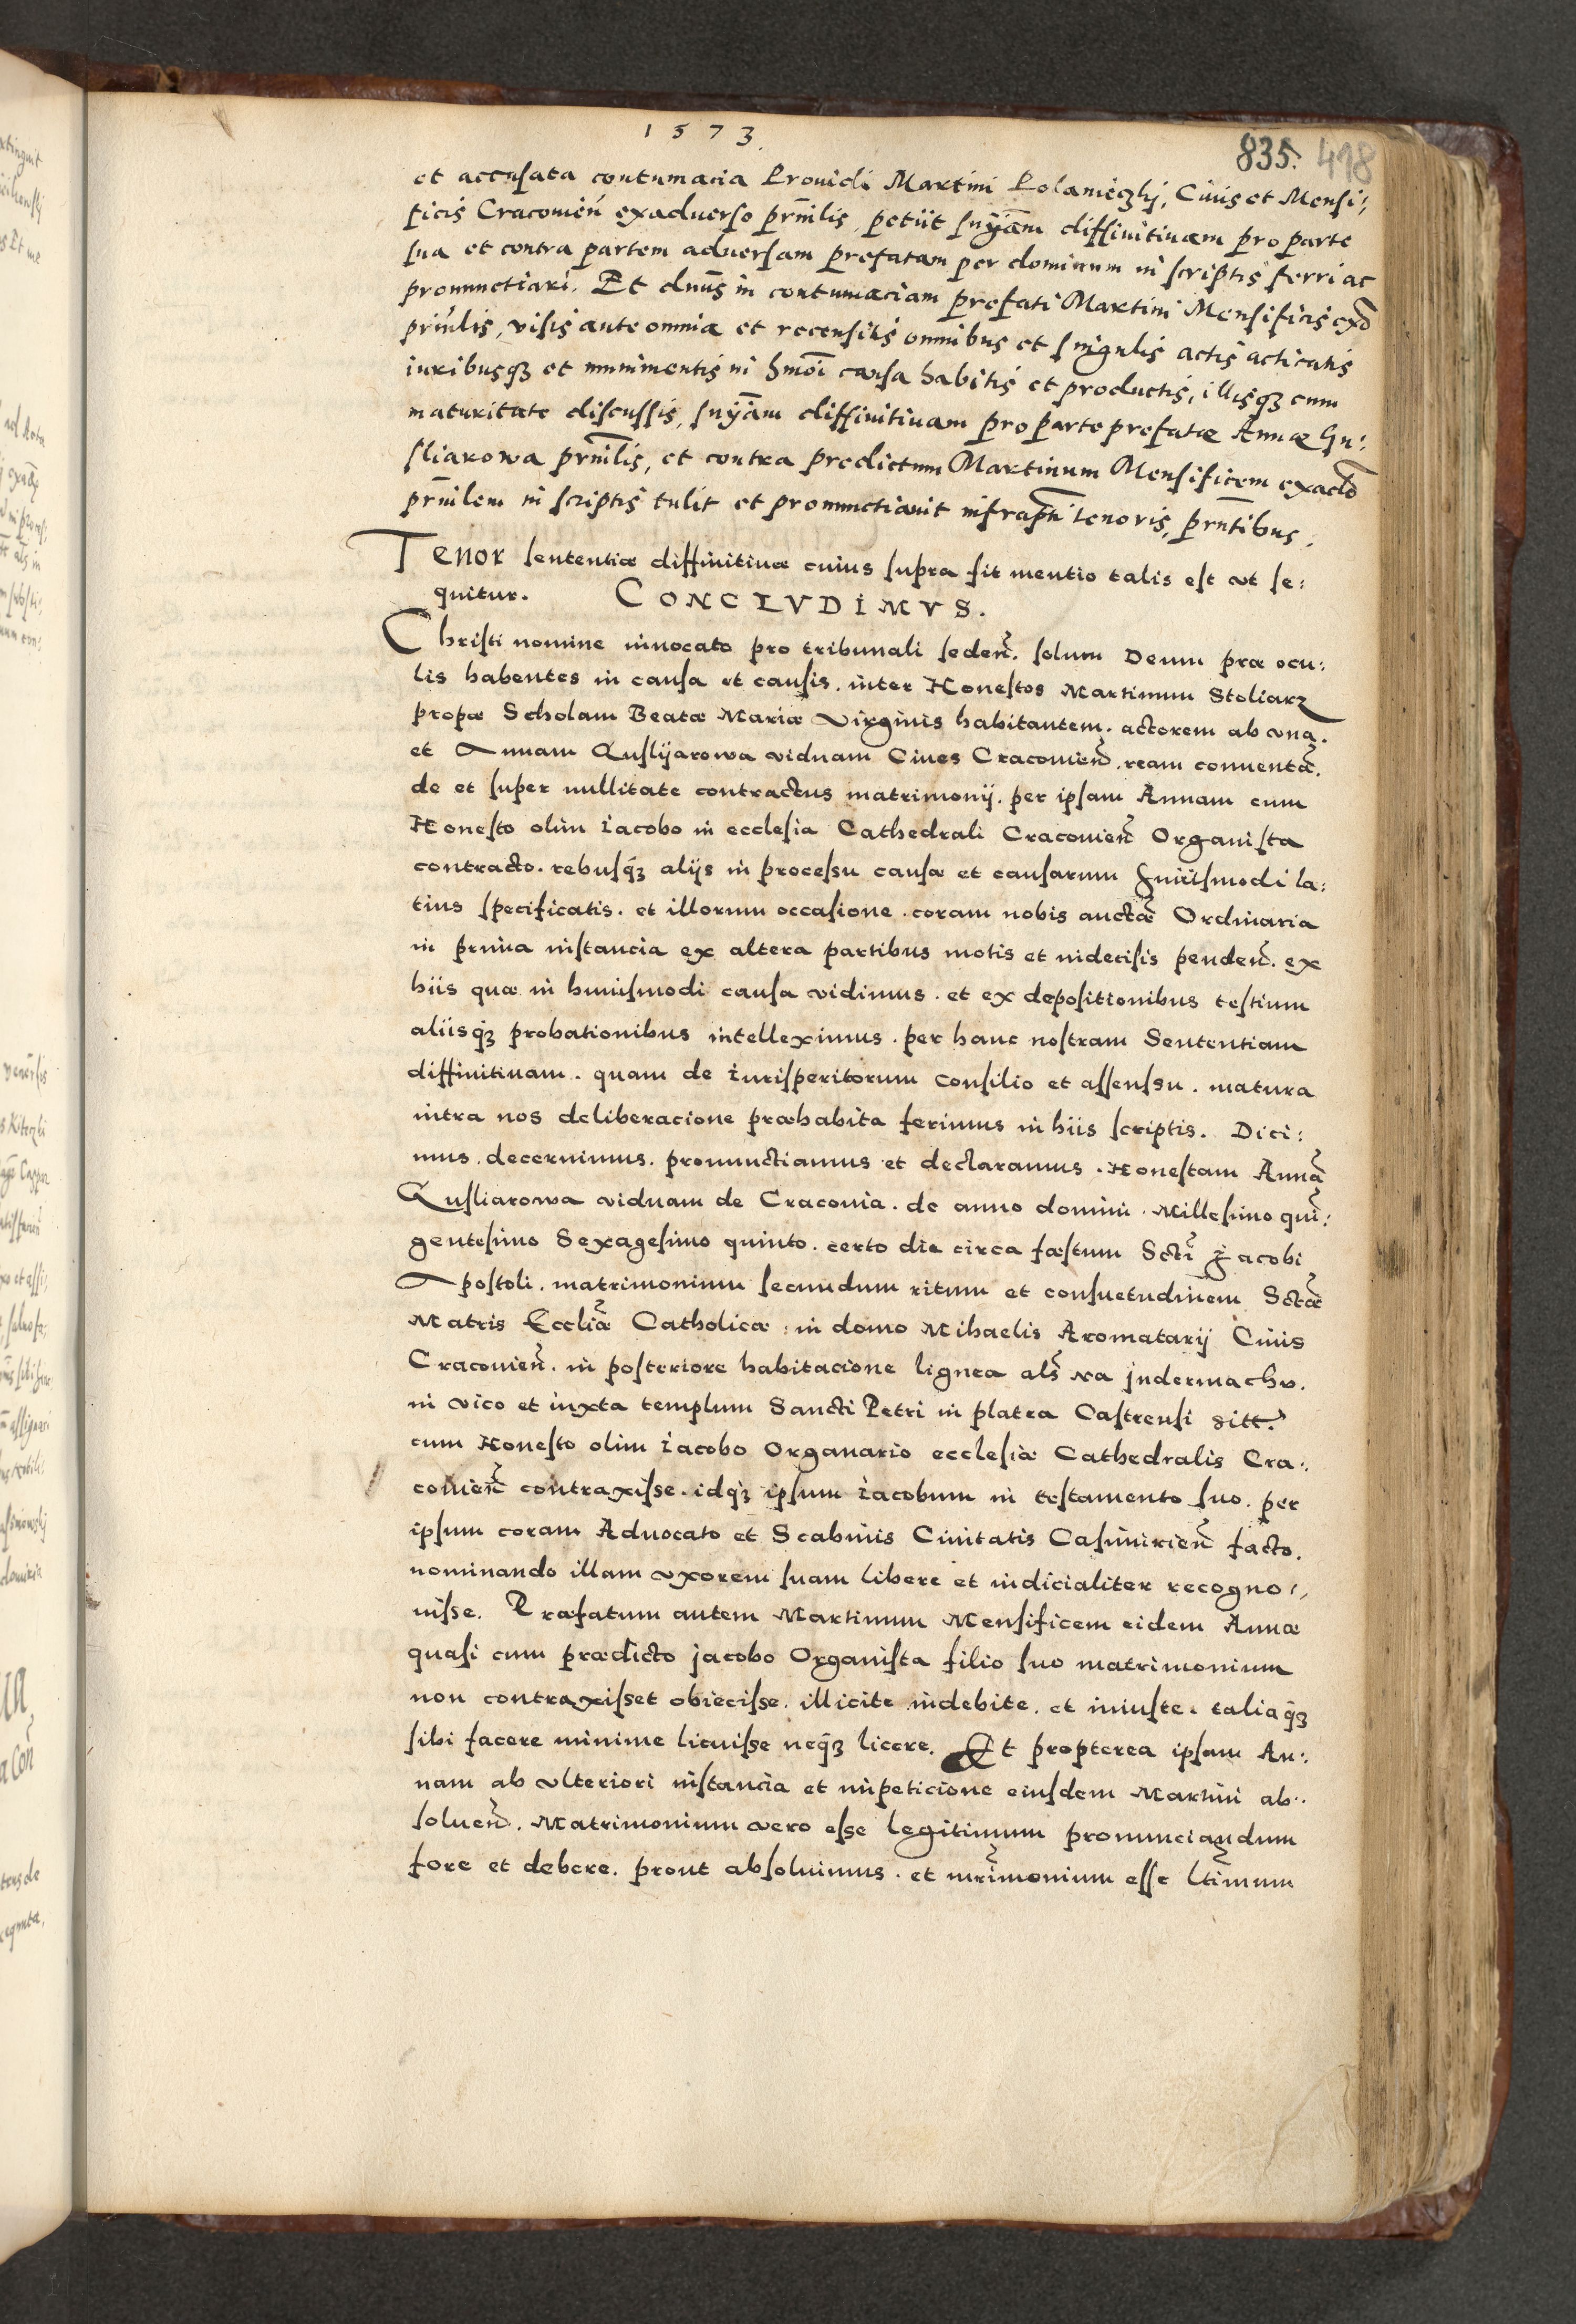 1573.
835. 418
et accusata contumacia Prouidi Martini Polanieczkij, Ciuis et Mensi:
ficis Cracouien̄ exaduerso prn̄ilis, petiit sn̄yam diffinitiuam pro parte
sua et contra partem aduersam prefatam per dominum in scriptis ferri ac
pronunctiari. Et dnūs in contumaciam prefati Martini Mensificis exad
prn̄ilis, visis ante omnia et recensitis omnibus et singulis actis acticatis
iuribusq3 et munimentis in hmōi causa habitis et productis, illisq3 cum
maturitate discussis, sn̄yam diffinitiuam pro parte prefatæ Annæ Gu:
sliarowa prn̄ilis, et contra predictum Martinum Mensificem exaduo
prn̄ilem in scriptis tulit et pronunctiauit infrapti tenoris, prn̄tibus.
Tenor sententiæ diffinitiuæ cuius supra fit mentio talis est ut se:
quitur. CONCLVDIMVS.
Christi nomine inuocato pro tribunali seden̄. solum Deum præ ocu:
lis habentes in causa et causis. inter Honestos Martinum Stoliarz
propæ Scholam Beatæ Mariæ Virginis habitantem. actorem ab vna.
et Annam Quslyarowa viduam Ciues Cracouien̄. ream conuentā.
de et super nullitate contractus matrimonij. per ipsam Annam cum
Honesto olim Iacobo in ecclesia Cathedrali Cracouien̄ Organista
contracto. rebusq3 alijs in processu causæ et causarum huiusmodi la:
tius specificatis. et illorum occasione. coram nobis auctæ Ordinaria
in prima instancia ex altera partibus motis et indecisis penden̄. ex
hiis quæ in huiusmodi causa vidimus. et ex depositionibus testium
aliisq3 probationibus intelleximus. per hanc nostram Sententiam
diffinitiuam. quam de iurisperitorum consilio et assensu. matura
intra nos deliberacione præhabita ferimus in hiis scriptis. Dici:
mus. decernimus. pronunctiamus et declaramus. Honestam Annā
Qusliarowa viduam de Cracouia. de anno domini. Millesimo quī:
gentesimo Sexagesimo quinto. certo die circa fæstum Sctī Jacobi
Apostoli. matrimonium secundum ritum et consuetudinem Sctæ
Matris Eccliæ Catholicæ in domo Mihaelis Aromatarij Ciuis
Cracouien̄. in posteriore habitacione lignea als̄ na jndermachv.
in vico et iuxta templum Sancti Petri in platea Castrensi sitt.
cum Honesto olim Iacobo Organario ecclesiæ Cathedralis Cra:
couien̄ contraxisse. idq3 ipsum Iacobum in testamento suo. per
ipsum coram Aduocato et Scabinis Ciuitatis Casimirien̄ facto.
nominando illam vxorem suam libere et iudicialiter recogno:
uisse. Præfatum autem Martinum Mensificem eidem Annæ
quasi cum prædicto jacobo Organista filio suo matrimonium
non contraxisset obiecisse. illicite indebite. et iniuste. taliaq3
sibi facere minime licuisse neq3 licere. Et propterea ipsam An:
nam ab vlteriori instancia et impeticione eiusdem Martini ab:
soluen̄. Matrimonium vero esse legitimum pronunciandum
fore et debere. prout absoluimus. et mr̄imonium esse ltīmum